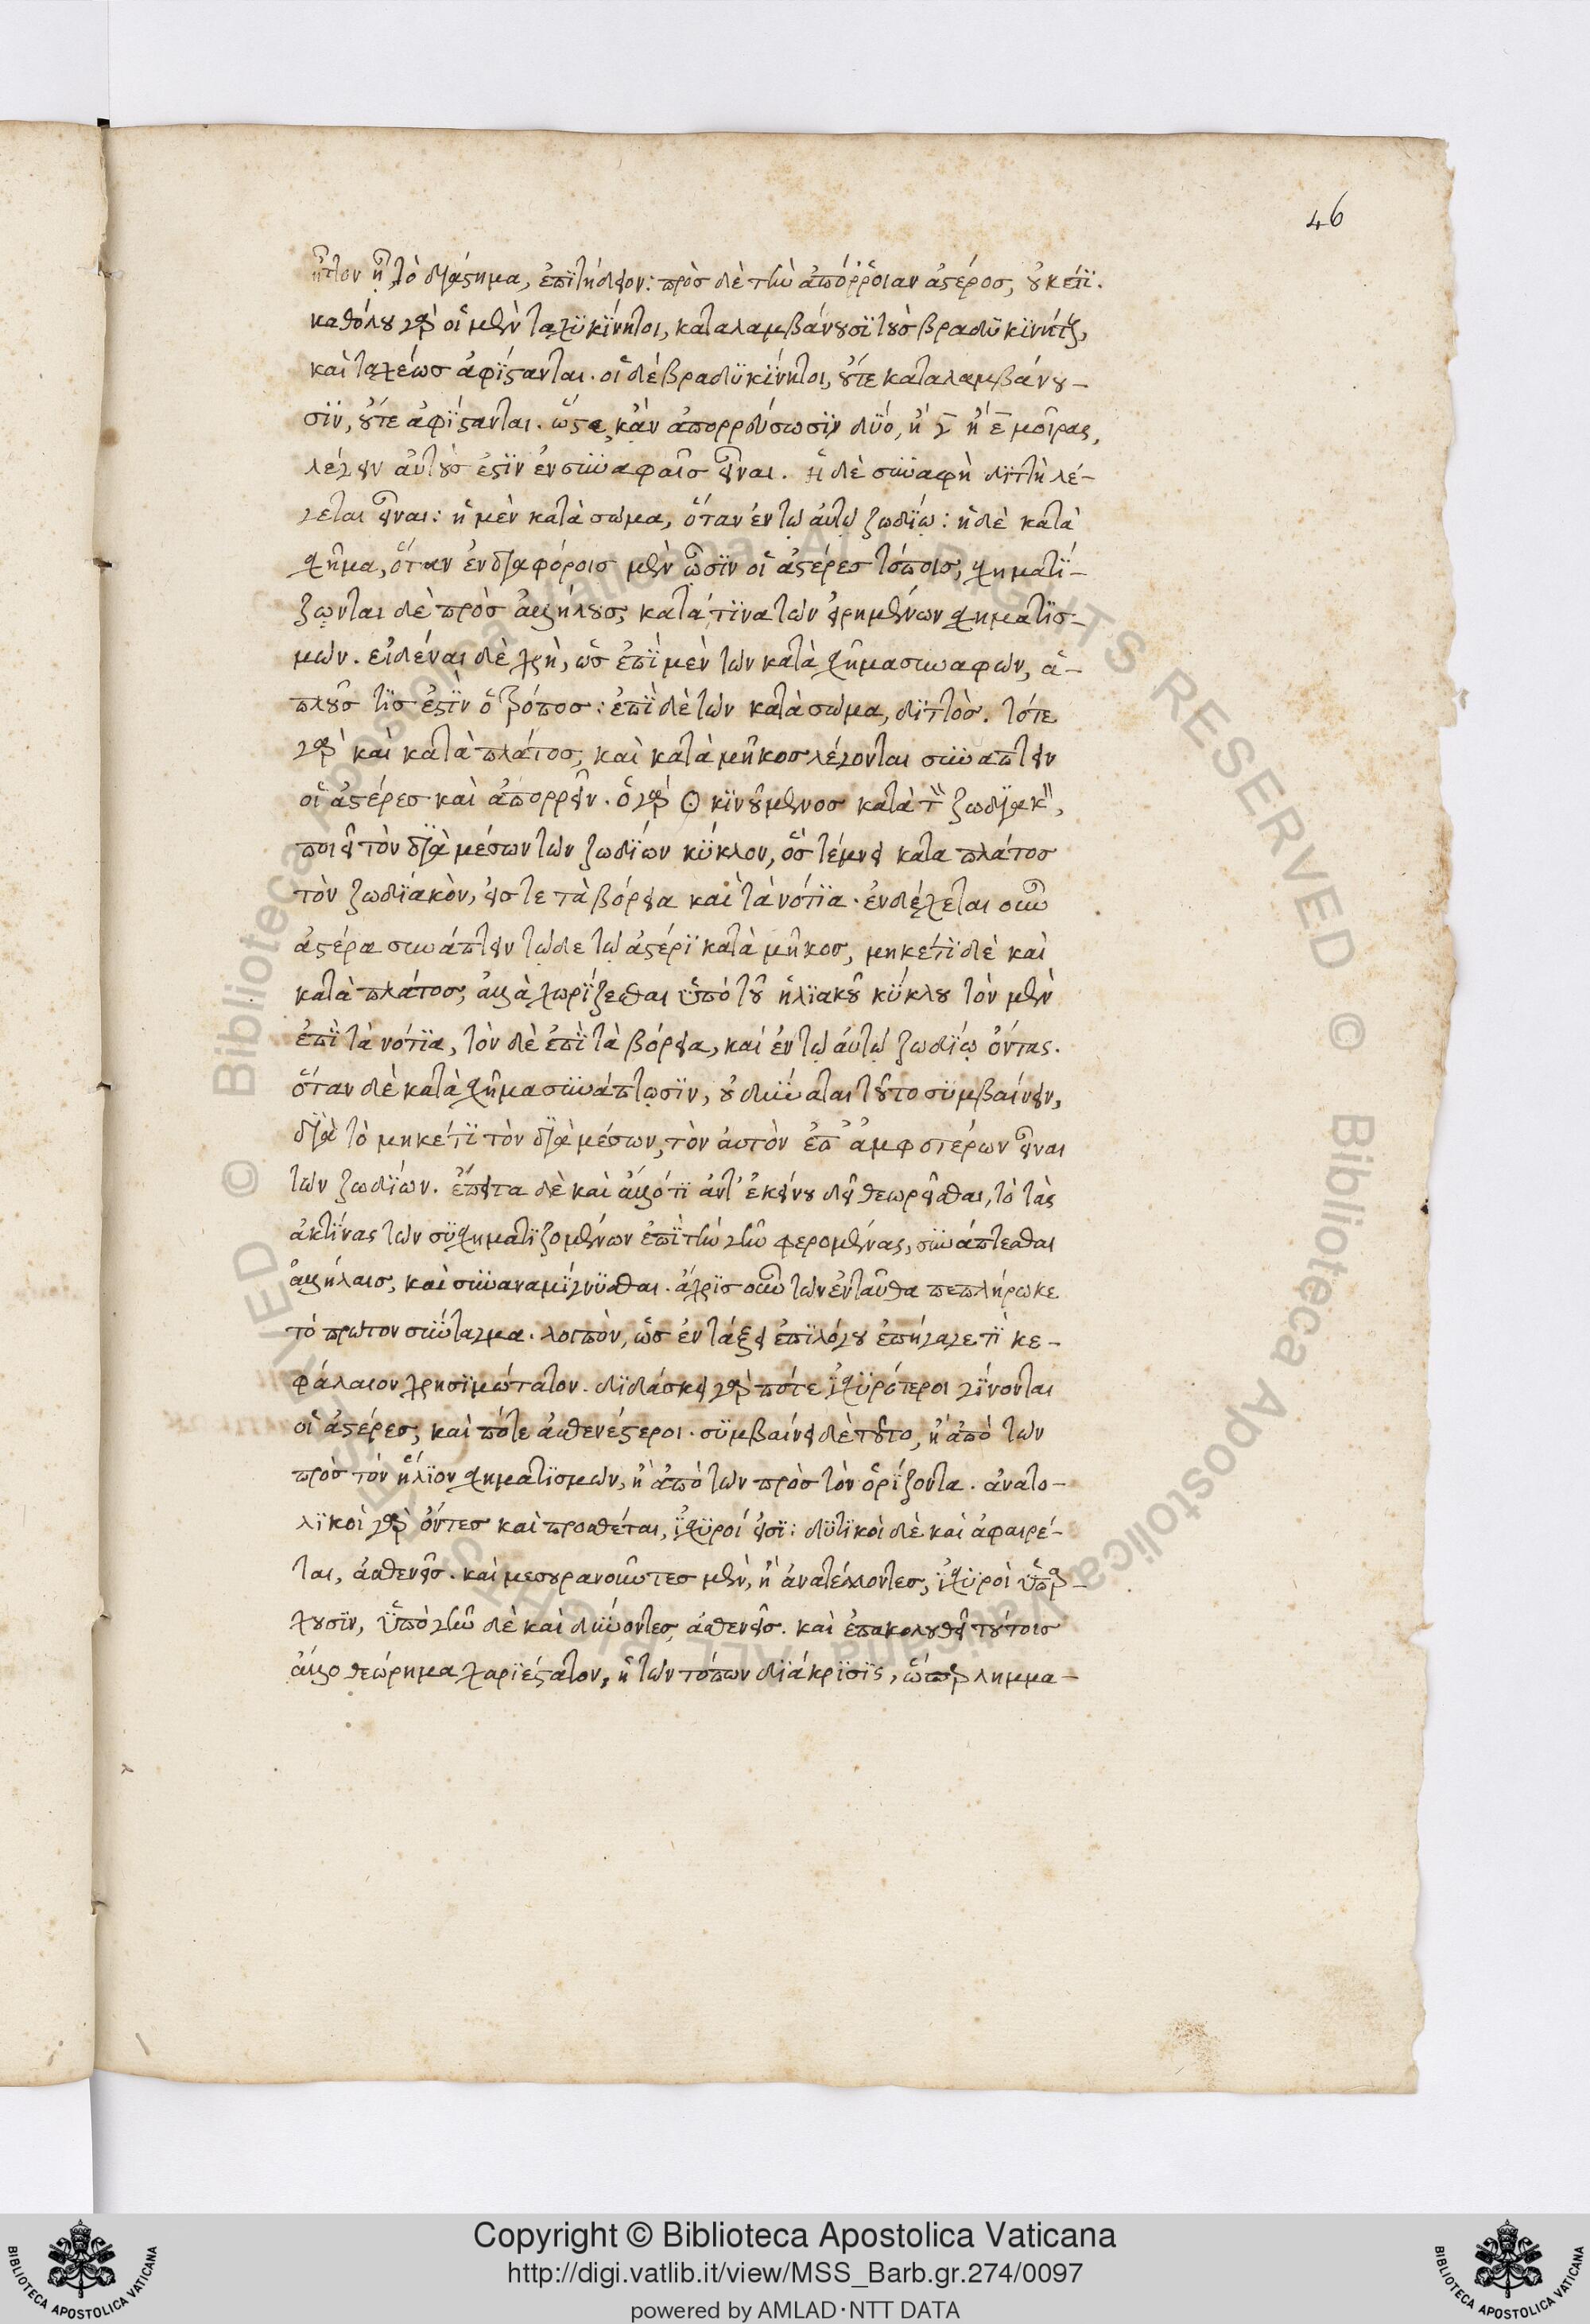 46
ἧττον ᾖ τὸ διάστημα, ἐπιτήδειον: πρὸς δὲ τὴν ἀπόρροιαν ἀστέρος, οὐκέτι.
καθόλου γὰρ οἱ μὲν ταχυκίνητοι, καταλαμβάνουσι τοὺς βραδυκινήτους,
καὶ ταχέως ἀφίστανται. οἱ δὲ βραδυκίνητοι, οὔτε καταλαμβάνου-
σιν, οὔτε ἀφίστανται. ὥστε κἂν ἀπορρεύσωσιν δύο, ἢ γ ἢ ε μοίρας,
λέγειν αὐτοὺς ἐστὶν ἐν συναφαῖς εἶναι. ἡ δὲ συναφὴ διττὴ λέ-
γεται εἶναι: ἡ μὲν κατὰ σῶμα, ὅταν ἐν τῷ αὐτῷ ζωδίῳ: ἡ δὲ κατὰ
σχῆμα, ὅταν ἐν διαφόροις μὲν ὦσιν οἱ ἀστέρες τόποις, σχηματί-
ζωνται δὲ πρὸς ἀλλήλους, κατά τινα τῶν εἰρημένων σχηματισ-
μῶν. εἰδέναι δὲ χρὴ, ὡς ἐπὶ μὲν τῶν κατὰ σχῆμα συναφῶν, ἁ-
πλοῦς τις ἐστὶν ὁ τρόπος: ἐπὶ δὲ τῶν κατὰ σῶμα, διττὸς. τότε
γὰρ καὶ κατὰ πλάτος, καὶ κατὰ μῆκος λέγονται συνάπτειν
οἱ ἀστέρες καὶ ἀπορρεῖν. ὁ γὰρ ☉ κινούμενος κατὰ τὸν ζωδιακὸν,
ποιεῖ τὸν διὰ μέσων τῶν ζωδίων κύκλον, ὃς τέμνει κατα πλάτος
τὸν ζωδιακὸν, εἴς τε τὰ βόρεια καὶ τὰ νότια. ἐνδέχεται οὖν
ἀστέρα συνάπτειν τῷδε τῷ ἀστέρι κατὰ μῆκος, μηκέτι δὲ καὶ
κατὰ πλάτος, ἀλλὰ χωρίζεσθαι ὑπὸ τοῦ ἡλιακοῦ κύκλου τὸν μὲν
ἐπὶ τὰ νότια, τὸν δὲ ἐπὶ τὰ βόρεια, καὶ ἐν τῷ αὐτῷ ζωδίῳ ὄντας.
ὅταν δὲ κατὰ σχῆμα συνάπτωσιν, οὐ δύναται τοῦτο συμβαίνειν,
διὰ τὸ μηκέτι τὸν διὰ μέσων, τὸν αὐτὸν ἐπ' ἀμφοτέρων εἶναι
τῶν ζωδίων. ἔπειτα δὲ καὶ ἄλλό τι ἀντ' ἐκείνου δεῖ θεωρεῖσθαι, τὸ τὰς
ἀκτίνας τῶν συσχηματιζομένων ἐπὶ τὴν γῆν φερομένας, συνάπτεσθαι
ἀλλήλαις, καὶ συναναμίγνυσθαι. ἄχρις οὖν τῶν ἐνταῦθα πεπλήρωκε
τὸ πρῶτον σύνταγμα. λοιπὸν, ὡς ἐν τάξει ἐπιλόγου ἐπήγαγε τὶ κε-
φάλαιον χρησιμώτατον. διδάσκει γὰρ πότε ἰσχυρότεροι γίνονται
οἱ ἀστέρες, καὶ πότε ἀσθενέστεροι. συμβαίνει δὲ τοῦτο, ἢ ἀπὸ τῶν
πρὸς τὸν ἥλιον σχηματισμῶν, ἢ ἀπὸ τῶν πρὸς τὸν ὁρίζοντα. ἀνατο-
λικοὶ γὰρ ὄντες καὶ προσθέται, ἰσχυροί εἰσι: δυτικοὶ δὲ καὶ ἀφαιρέ-
ται, ἀσθενεῖς. καὶ μεσουρανοῦντες μὲν, ἢ ἀνατέλλοντες, ἰσχυροὶ ὑπάρ-
χουσιν, ὑπὸ γῆν δὲ καὶ δύνοντες, ἀσθενεῖς. καὶ ἐπακολουθεῖ τούτοις
ἄλλο θεώρημα χαριέστατον, ἡ τῶν τόπων διάκρισις, ὥσπερ λημμα-
Copyright © Biblioteca Apostolica Vaticana
http://digi.vatlib.it/view/MSS_Barb.gr.274/0097
powered by AMLAD·NTT DATA